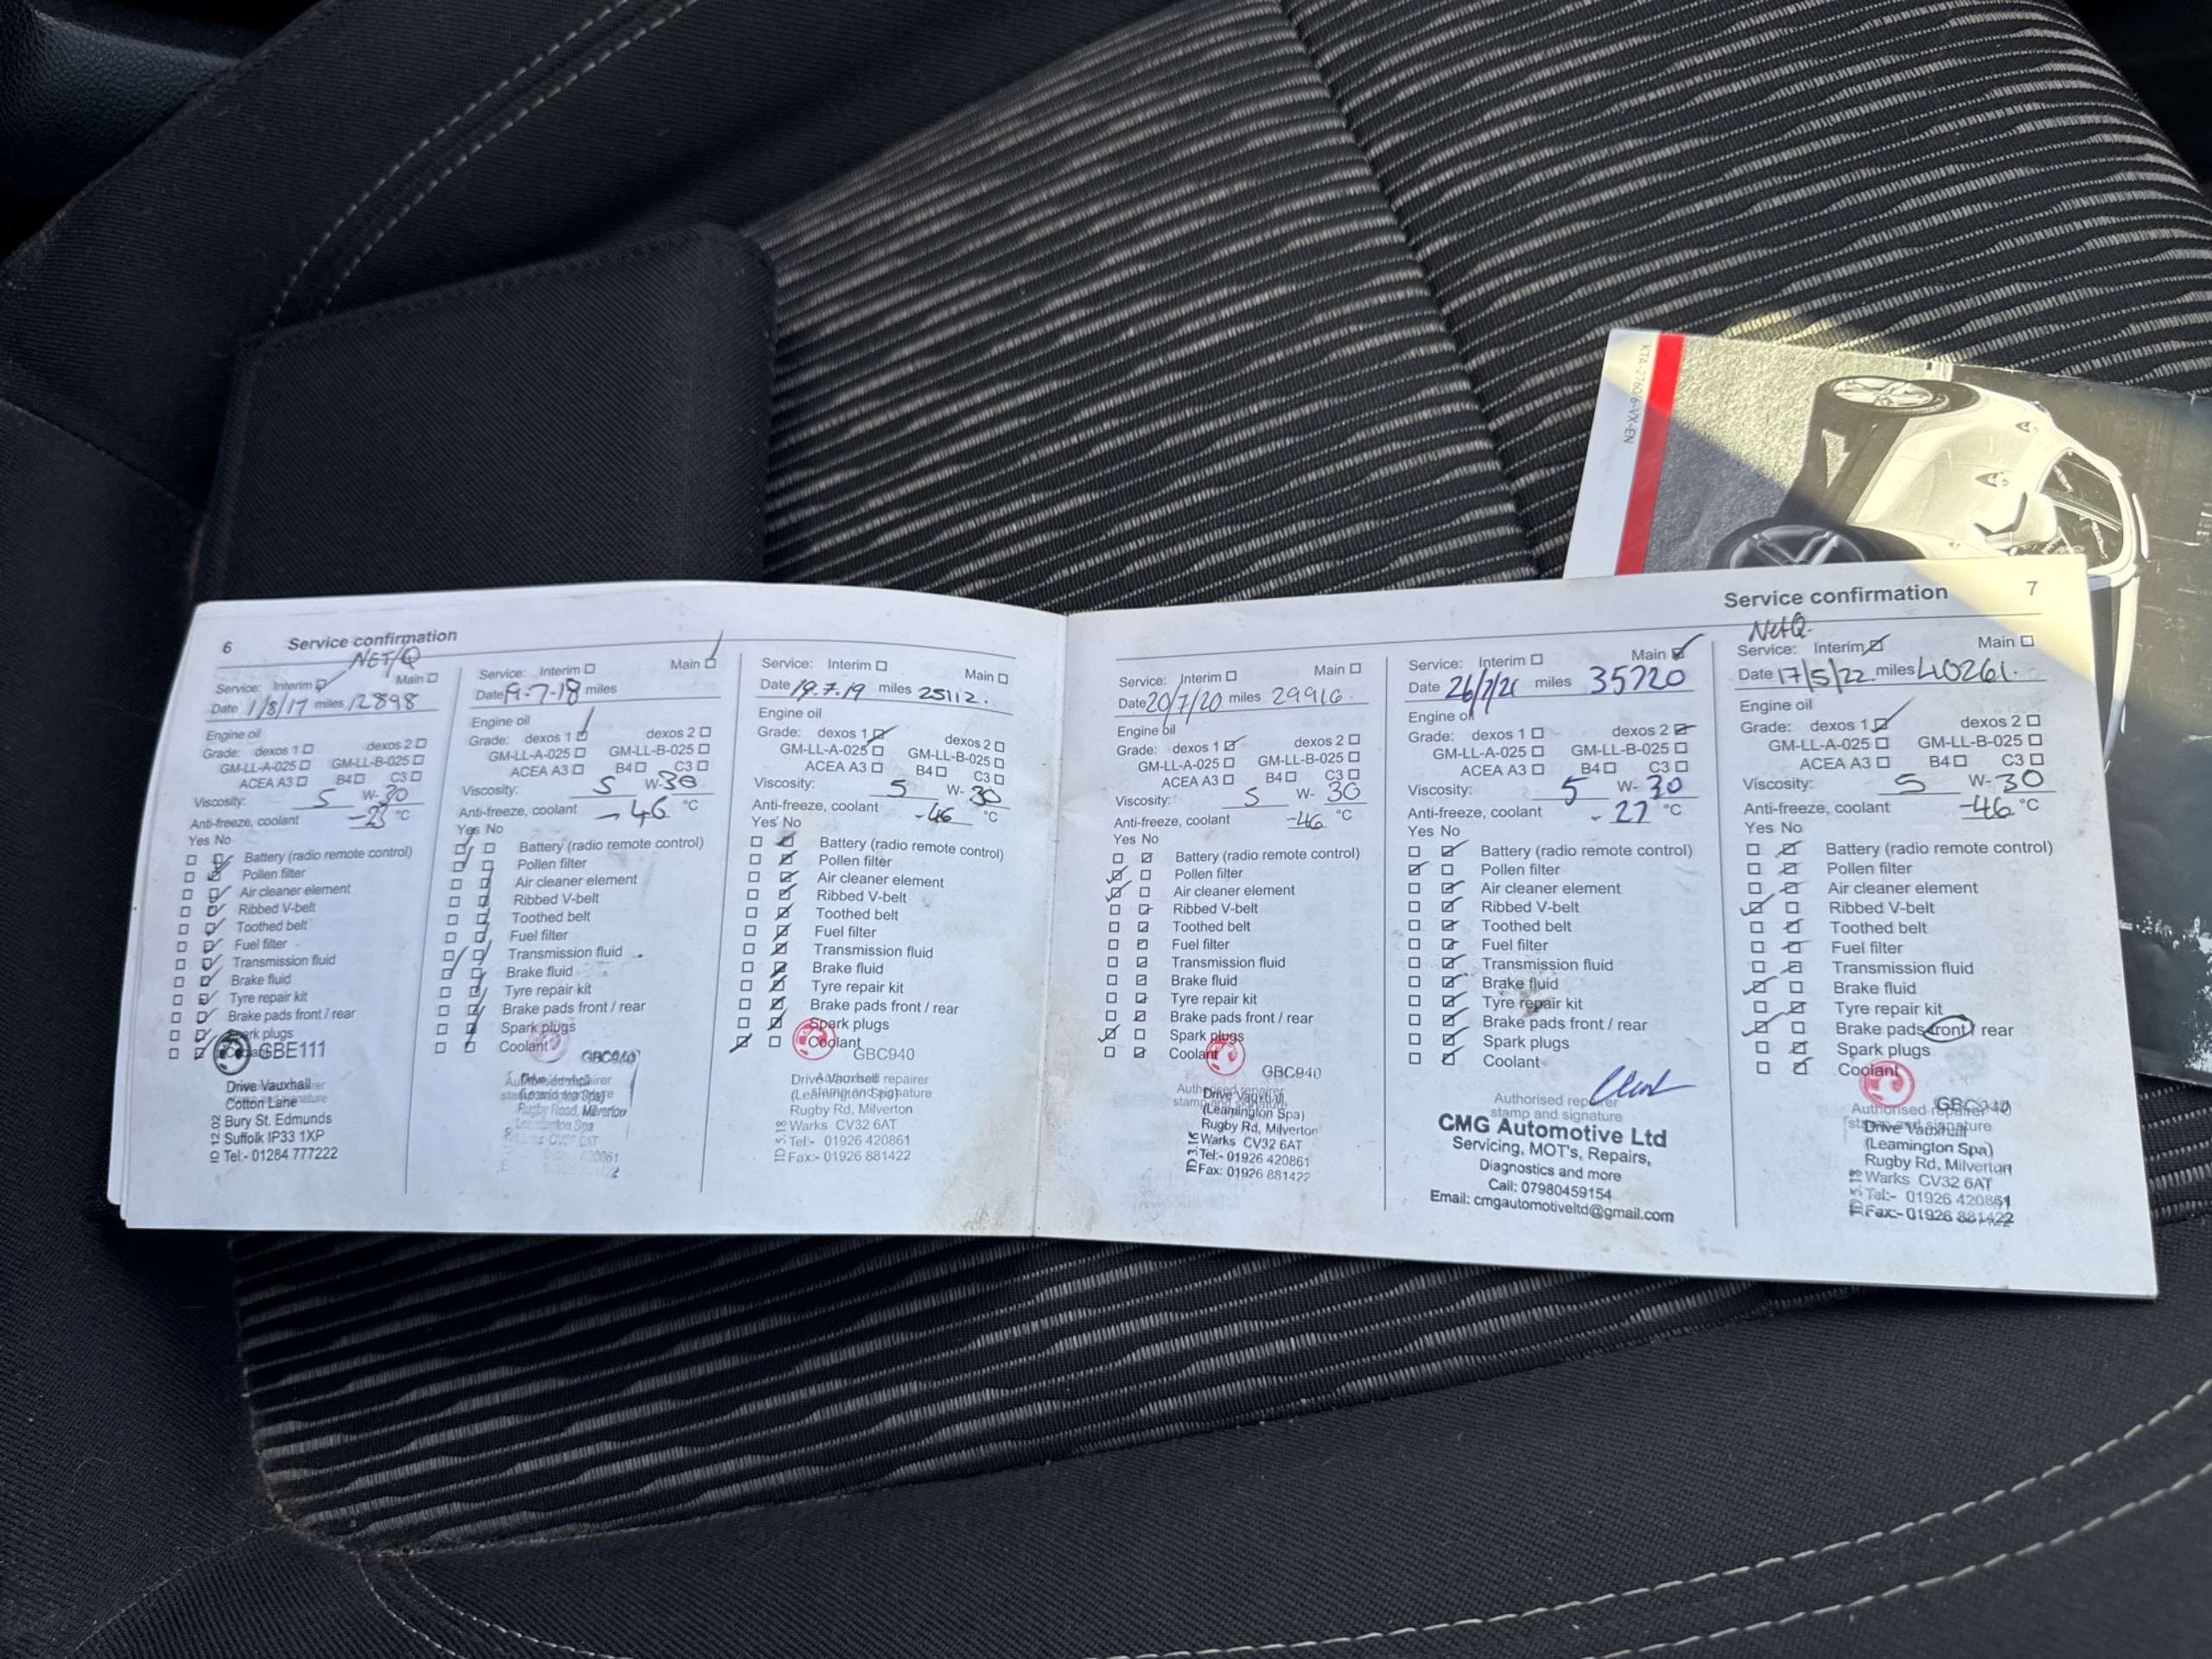 KTA-2766/6-VX-EN
6 Service confirmation
NET/Q
Service: Interim Main
Date 1/8/17 miles 12898
Engine oil
Grade: dexos 1 dexos 2
GM-LL-A-025 GM-LL-B-025
ACEA A3 B4 C3
Viscosity: 5 W-30
Anti-freeze, coolant °C
Yes No
Battery (radio remote control)
Pollen filter
Air cleaner element
Ribbed V-belt
Toothed belt
Fuel filter
Transmission fluid
Brake fluid
Tyre repair kit
Brake pads front / rear
Spark plugs
GBE111
Drive Vauxhall
Cotton Lane
Bury St. Edmunds
Suffolk IP33 1XP
Tel:- 01284 777222
Service: Interim Main
Date 9-7-18 miles
Engine oil
Grade: dexos 1 dexos 2
GM-LL-A-025 GM-LL-B-025
ACEA A3 B4 C3
Viscosity: 5 W-30
Anti-freeze, coolant -46 °C
Yes No
Battery (radio remote control)
Pollen filter
Air cleaner element
Ribbed V-belt
Toothed belt
Fuel filter
Transmission fluid
Brake fluid
Tyre repair kit
Brake pads front / rear
Spark plugs
Coolant
GBC940
Rugby Road, Milverton
Leamington Spa
Service: Interim Main
Date 19.7.19 miles 25112.
Engine oil
Grade: dexos 1 dexos 2
GM-LL-A-025 GM-LL-B-025
ACEA A3 B4 C3
Viscosity: 5 W-30
Anti-freeze, coolant -46 °C
Yes No
Battery (radio remote control)
Pollen filter
Air cleaner element
Ribbed V-belt
Toothed belt
Fuel filter
Transmission fluid
Brake fluid
Tyre repair kit
Brake pads front / rear
Spark plugs
Coolant
GBC940
Drive Vauxhall repairer
(Leamington Spa)
Rugby Rd, Milverton
Warks CV32 6AT
Tel:- 01926 420861
Fax:- 01926 881422
Service confirmation 7
Service: Interim Main
Date 20/7/20 miles 29916.
Engine oil
Grade: dexos 1 dexos 2
GM-LL-A-025 GM-LL-B-025
ACEA A3 B4 C3
Viscosity: 5 W-30
Anti-freeze, coolant -46 °C
Yes No
Battery (radio remote control)
Pollen filter
Air cleaner element
Ribbed V-belt
Toothed belt
Fuel filter
Transmission fluid
Brake fluid
Tyre repair kit
Brake pads front / rear
Spark plugs
Coolant
GBC940
Authorised repairer
Drive Vauxhall
(Leamington Spa)
Rugby Rd, Milverton
Warks CV32 6AT
Tel:- 01926 420861
Fax: 01926 881422
Service: Interim Main
Date 26/7/21 miles 35720
Engine oil
Grade: dexos 1 dexos 2
GM-LL-A-025 GM-LL-B-025
ACEA A3 B4 C3
Viscosity: 5 W-30
Anti-freeze, coolant -27 °C
Yes No
Battery (radio remote control)
Pollen filter
Air cleaner element
Ribbed V-belt
Toothed belt
Fuel filter
Transmission fluid
Brake fluid
Tyre repair kit
Brake pads front / rear
Spark plugs
Coolant
Authorised repairer
stamp and signature
CMG Automotive Ltd
Servicing, MOT's, Repairs,
Diagnostics and more
Call: 07980459154
Email: cmgautomotiveltd@gmail.com
Net Q.
Service: Interim Main
Date 17/5/22 miles 40261.
Engine oil
Grade: dexos 1 dexos 2
GM-LL-A-025 GM-LL-B-025
ACEA A3 B4 C3
Viscosity: 5 W-30
Anti-freeze, coolant -46 °C
Yes No
Battery (radio remote control)
Pollen filter
Air cleaner element
Ribbed V-belt
Toothed belt
Fuel filter
Transmission fluid
Brake fluid
Tyre repair kit
Brake pads front / rear
Spark plugs
Coolant
GBC940
Authorised repairer
Drive Vauxhall
(Leamington Spa)
Rugby Rd, Milverton
Warks CV32 6AT
Tel:- 01926 420861
Fax:- 01926 881422